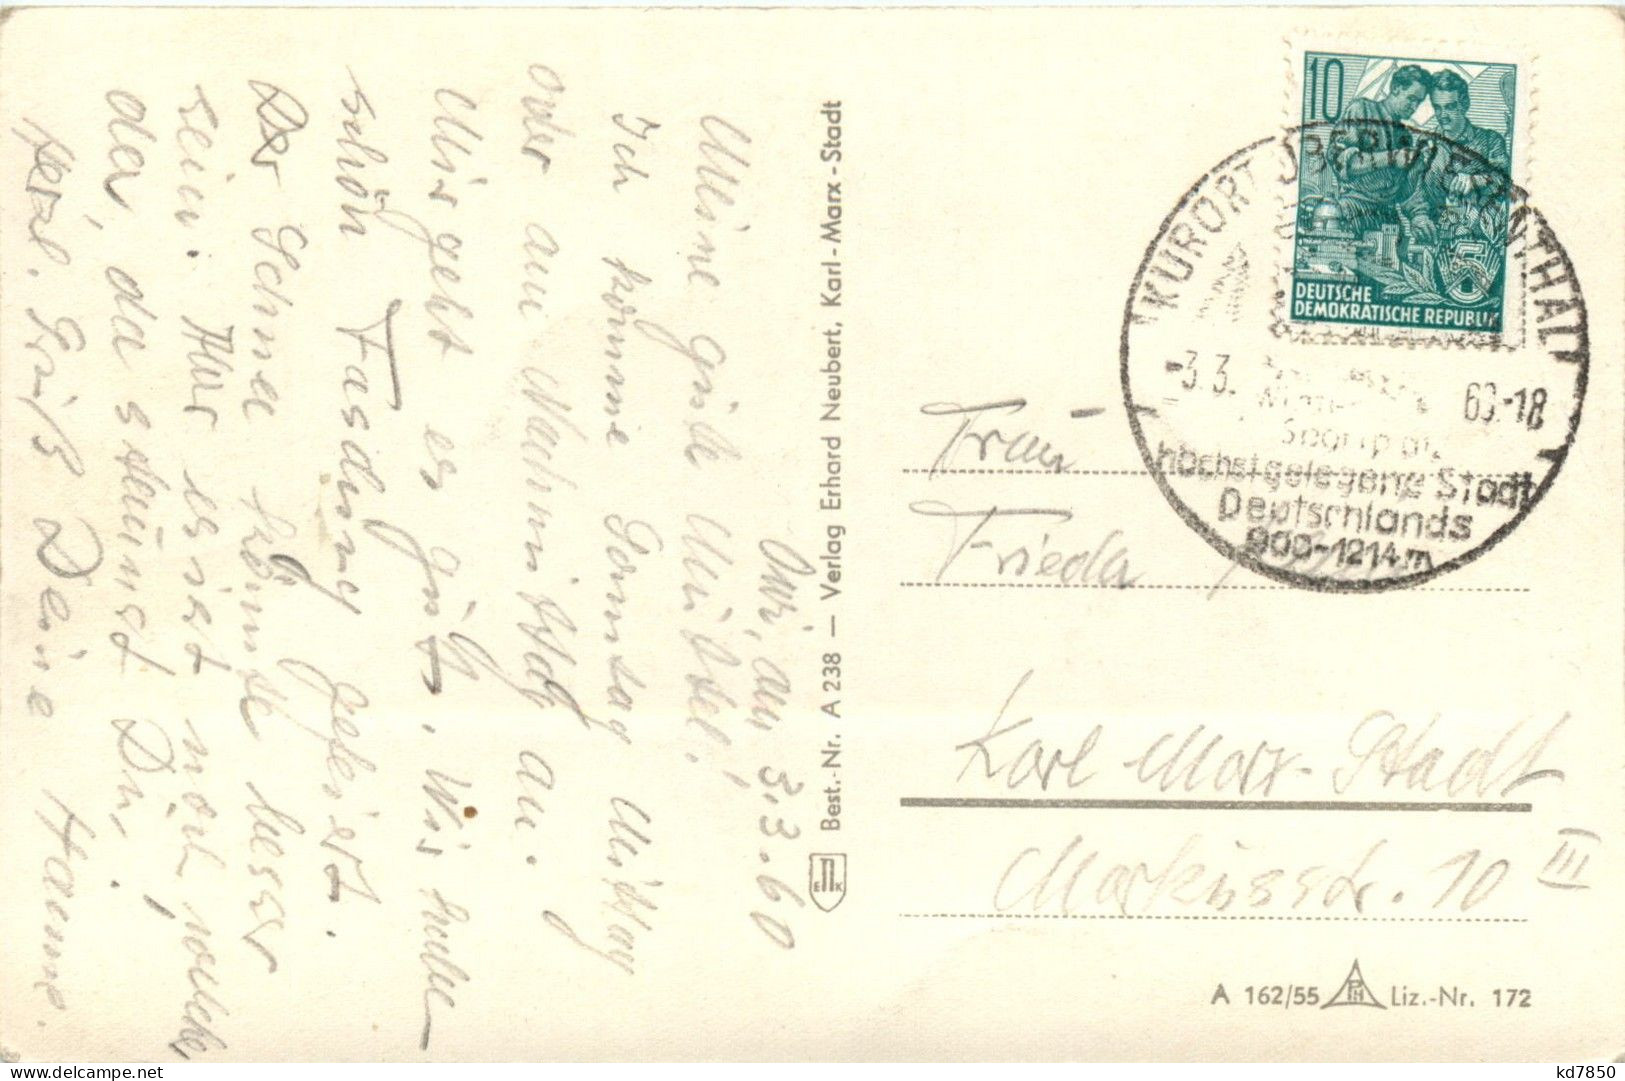 Owi, am 3.3.60
Meine gute Mutsel!
Ich komme Sonntag Mittag
oder am Nachmittag an.
Mir geht es gut. Wir haben
schön Fasching gefeiert.
Der Schnee könnte besser
sein. Aber es ist noch welcher
der, da staunst Du!
Herzl. Gruß Deine Hanne.
Best.-Nr. A 238 — Verlag Erhard Neubert, Karl-Marx-Stadt
E K
10
DEUTSCHE
DEMOKRATISCHE REPUBLIK
5
KURORT OBERWIESENTHAL
-3.3. 60.-18
Sportplatz
höchstgelegene Stadt
Deutschlands
900-1214m
Frau
Frieda
Karl Marx-Stadt
Markusstr. 10 III
A 162/55 Liz.-Nr. 172
kd7850